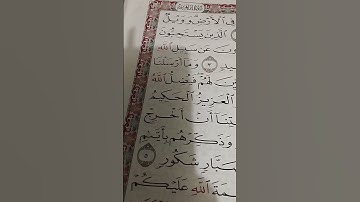 فِى ٱلْأَرْضِ وَوَيْلٌ
ٱلَّذِينَ يَسْتَحِبُّونَ
ونَ عَن سَبِيلِ ٱللَّهِ
يدٍ ٣ وَمَآ أَرْسَلْنَا
ينَ لَهُمْ فَيُضِلُّ ٱللَّهُ
ٱلْعَزِيزُ ٱلْحَكِيمُ
تِنَآ أَنْ أَخْرِجْ
وَذَكِّرْهُم بِأَيَّىٰمِ
صَبَّارٍ شَكُورٍ ٥
مَةَ ٱللَّهِ عَلَيْكُمْ